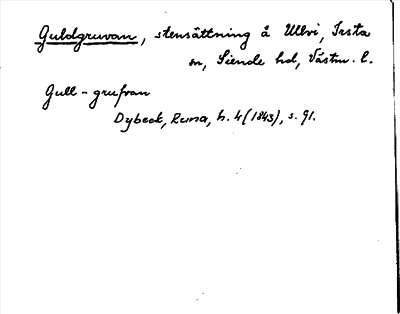 Guldgruvan, stensättning å Ullvi, Irsta
sn, Siende hd, Västm. l.
Gull-grufvan
Dybeck, Runa, h. 4 (1843), s. 91.